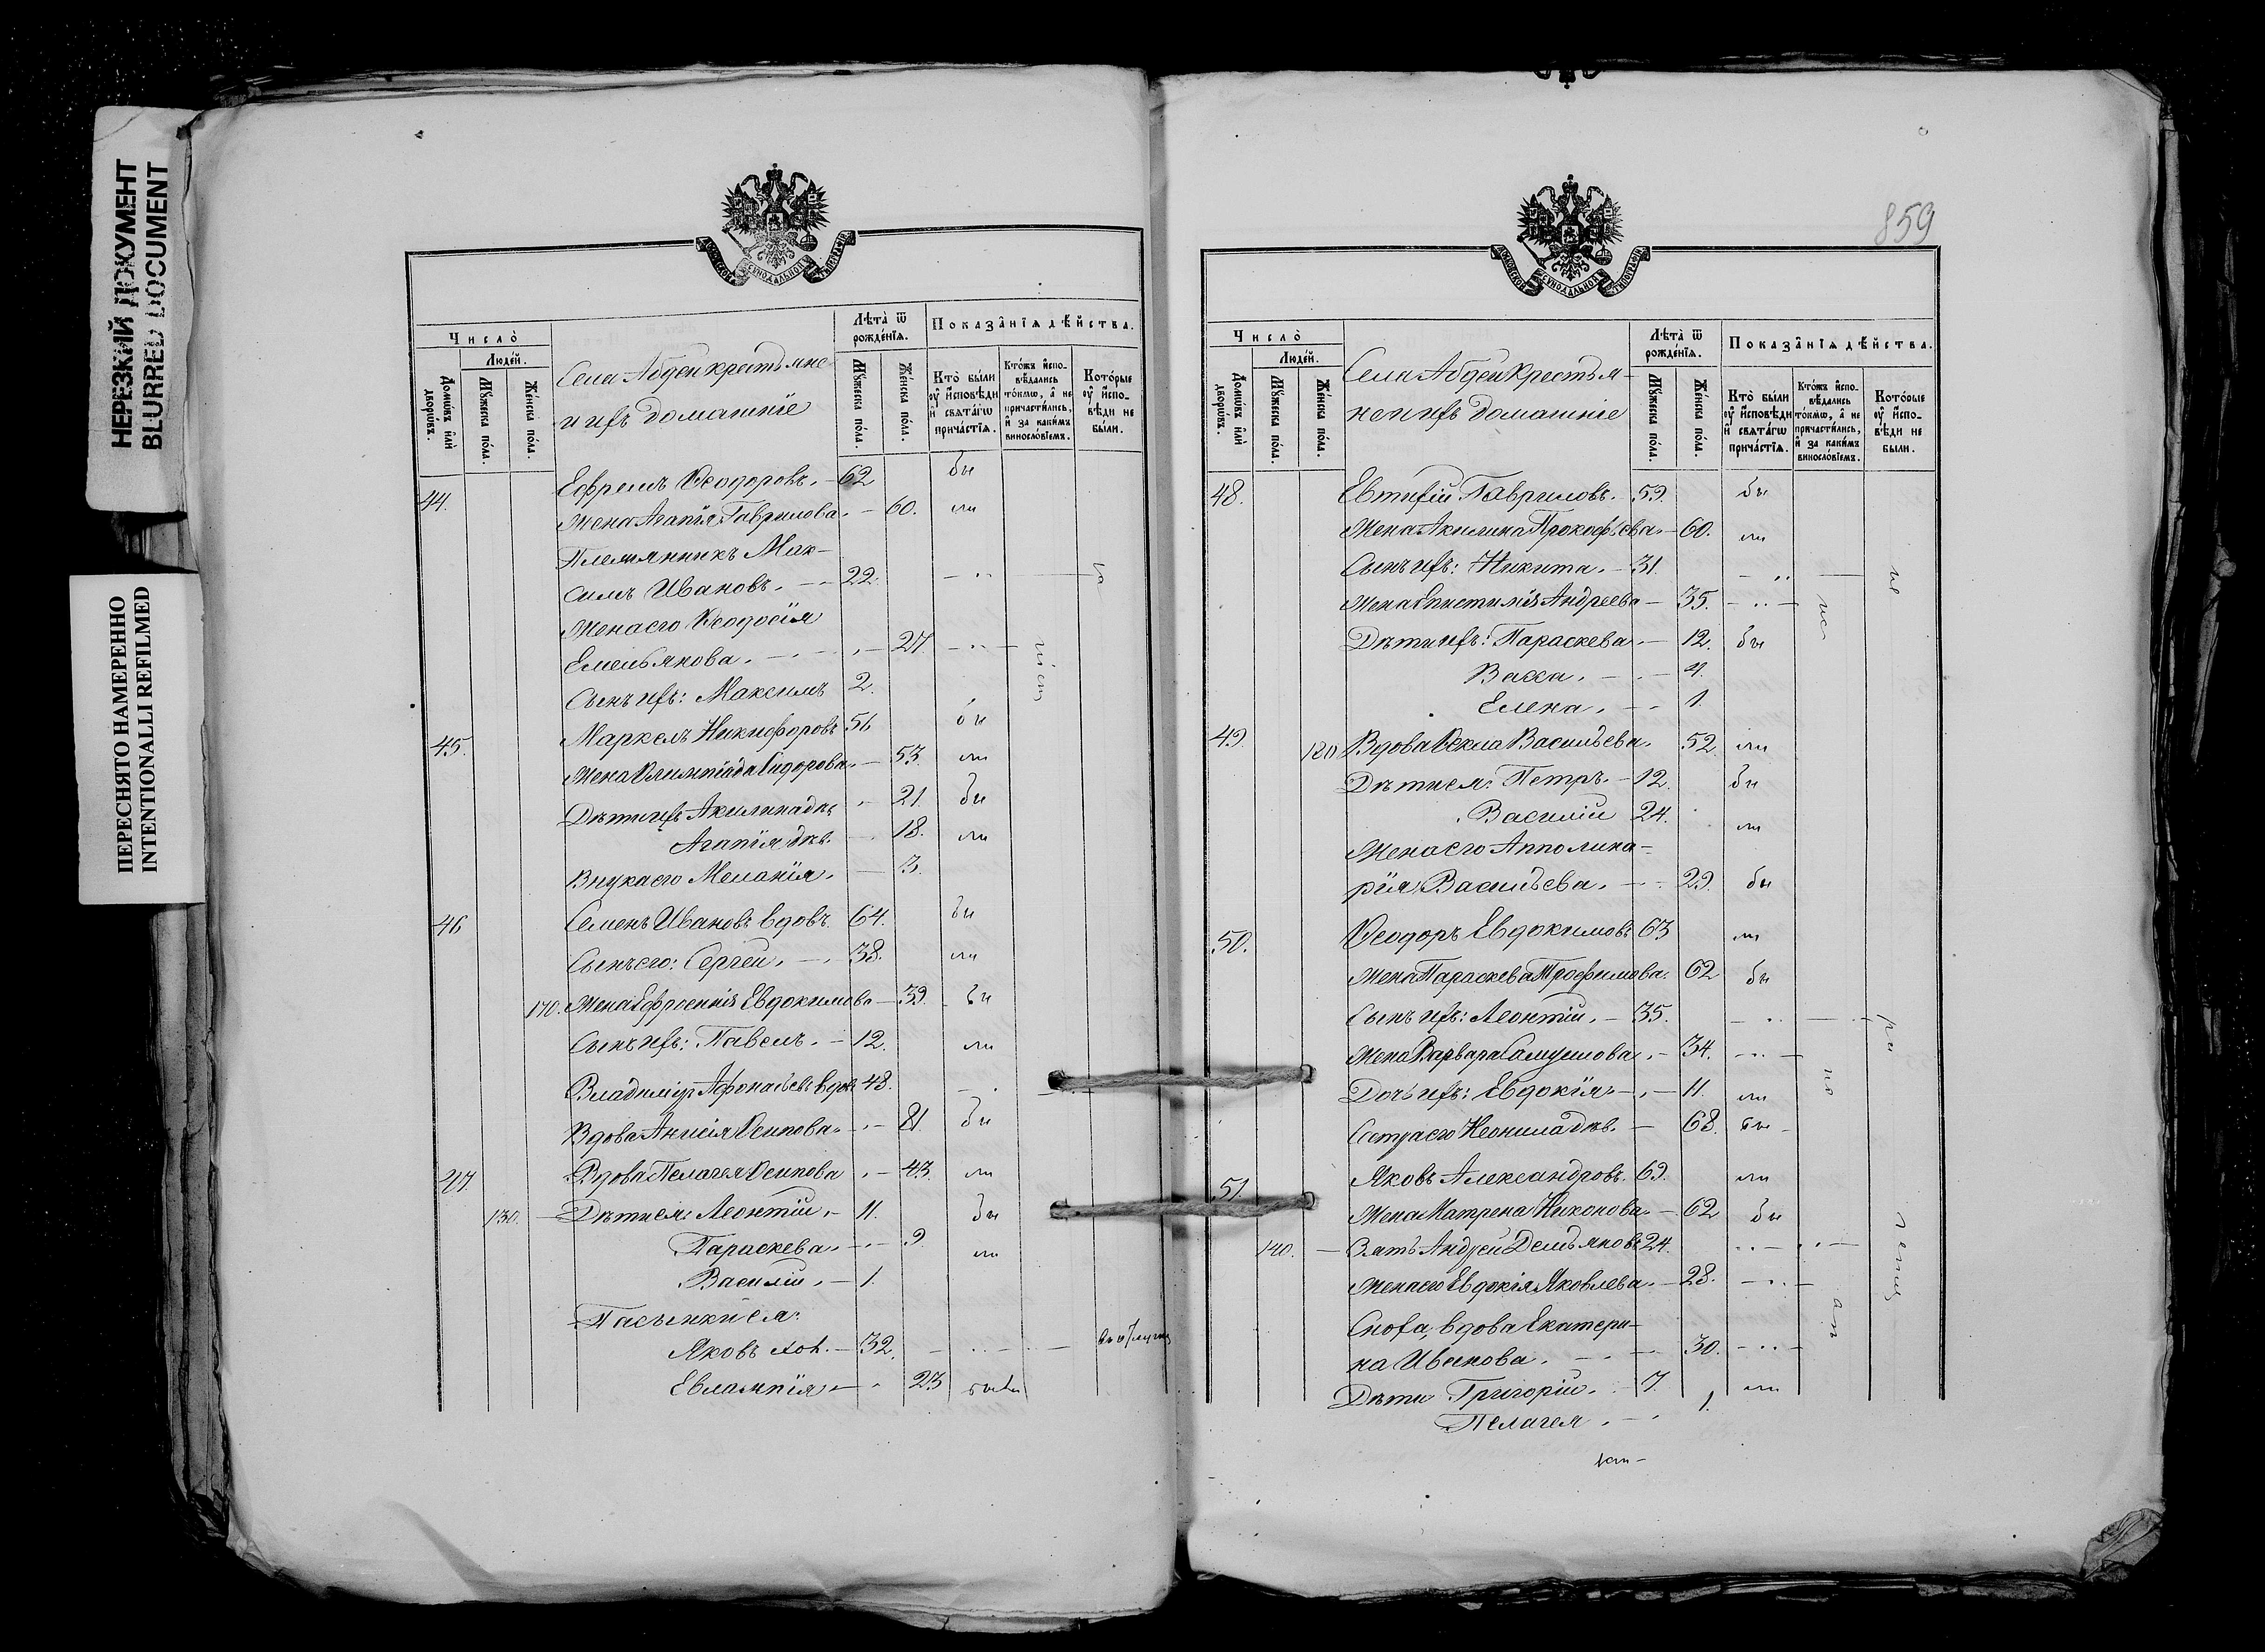 НЕРЕЗКИЙ ДОКУМЕНТ
BLURRED DOCUMENT
ПЕРЕСНЯТО НАМЕРЕННО
INTENTIONALLI REFILMED
МОСКОВСКОЙ СУНОДАЛЬНОЙ ТИПОГРАФІИ
Число̀
Людей.
Домѡ́въ и҆лѝ дворѡ́въ.
Мꙋ́жеска по́ла.
Же́нска по́ла.
Села Абден крестьяне
и ихъ домашніе
Лѣта̀ ѿ рожде́нїѧ.
Мꙋ́жеска по́ла.
Же́нска по́ла.
Показа̂нїѧ дѣ́йства.
Кто̀ бы́ли ᲂу҆ и҆́сповѣди и҆ свѧта́гѡ прича́стїѧ.
Кто́жъ и҆спо-вѣ́дались то́кмѡ, а҆ не причасти́лись, и҆ за каки́мъ винослови́емъ.
Кото́рые ᲂу҆ и҆́спо-вѣди не бы́ли.
44. Ефремъ Ѳеодоровъ. 62 бы
Жена Агапія Гаврилова. 60. ли
Племянникъ Мак-
симъ Ивановъ. 22.
Жена его Ѳеодосія
Емельянова. 27.
Сынъ ихъ: Максимъ 2.
45. Маркелъ Никифоровъ 51 бы
Жена Олимпіада Сидорова. 53. ли
Дѣти ихъ Акилина дѣв. 21. бы
Агапія дѣв. 18. ли
Внука его Меланія. 3.
46 Семенъ Ивановъ вдовъ. 64. бы
Сынъ его: Сергеи. 38. ли
170. Жена Ефросинія Евдокимова 39. бы
Сынъ ихъ: Павелъ. 12. ли
Владиміръ Афонасьевъ вдов 48.
Вдова Анисія Осипова. 81. бы
47. Вдова Пелагея Осипова 43. ли
130. Дѣти ея: Леонтіи. 11. бы
Параскева. 9. ли
Василіи. 1.
Пасынки ея:
Яковъ хол. 32.
Евлампія 23 была
859
МОСКОВСКОЙ СУНОДАЛЬНОЙ ТИПОГРАФІИ
Число̀
Людей.
Домѡ́въ и҆лѝ дворѡ́въ.
Мꙋ́жеска по́ла.
Же́нска по́ла.
Села Абден крестья-
не и ихъ домашніе
Лѣта̀ ѿ рожде́нїѧ.
Мꙋ́жеска по́ла.
Же́нска по́ла.
Показа̂нїѧ дѣ́йства.
Кто̀ бы́ли ᲂу҆ и҆́сповѣди и҆ свѧта́гѡ прича́стїѧ.
Кто́жъ и҆спо-вѣ́дались то́кмѡ, а҆ не причасти́лись, и҆ за каки́мъ винослови́емъ.
Кото́рые ᲂу҆ и҆́спо-вѣди не бы́ли.
48. Евтифіи Гавриловъ. 59. бы
Жена Акилина Прокофьева. 60. ли
Сынъ ихъ: Никита. 31.
Жена Епистимія Андреева 35.
Дѣти ихъ: Параскева 12. бы
Васса. 4.
Елена. 1.
49. 180 Вдова Ѳекла Васильева. 52. ли
Дѣти ея: Петръ. 12. бы
Василіи 24. ли
Жена его Апполина-
рія Васильева. 29. бы
50. Ѳеодоръ Евдокимовъ 63 ли
Жена Параскева Трофимова. 62 бы
Сынъ ихъ: Леонтіи. 35.
Жена Варвара Самуилова. 34.
Дочь ихъ: Евдокія. 11. ли
Сестра его Неонила дѣв. 68. бы
51. Яковъ Александровъ. 69. ли
Жена Матрена Никонова. 62 бы
140. Зять Андреи Демьяновъ 24.
Жена его Евдокія Яковлева. 28.
Сноха, вдова Екатери-
на Иванова. 30.
Дѣти Григоріи. 7. ли
Пелагея. 1.